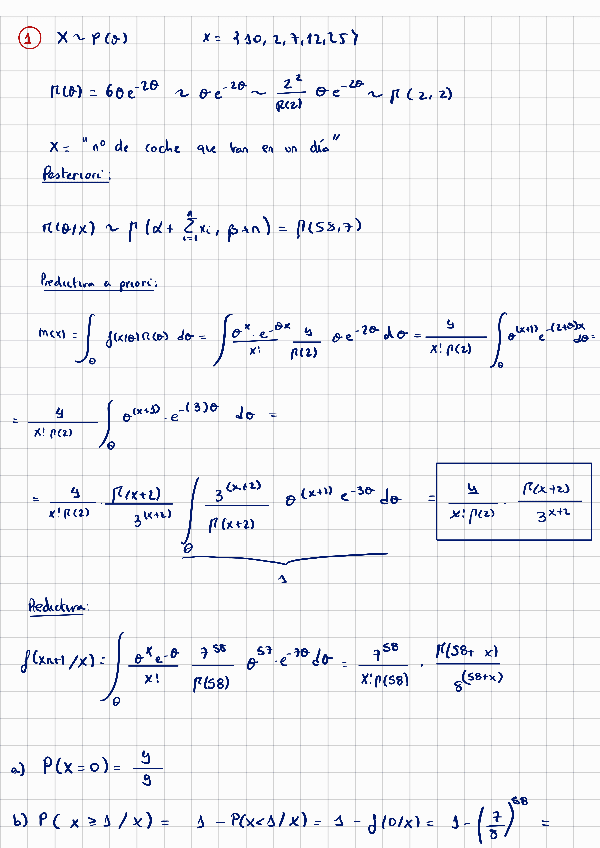 1 X ~ P(θ) X = {10, 2, 7, 12, 25}
π(θ) = 6θe^{-2θ} ~ θe^{-2θ} ~ \frac{2^2}{Γ(2)} θe^{-2θ} ~ Γ(2,2)
X = "nº de coche que van en un día"
Posteriori:
π(θ/x) ~ Γ(α + \sum_{i=1}^{n} x_i, β+n) = Γ(58,7)
Predictiva a priori:
m(x) = ∫_θ f(x|θ)π(θ) dθ = ∫ \frac{θ^x · e^{-θx}}{x!} \frac{4}{Γ(2)} θe^{-2θ} dθ = \frac{4}{x! Γ(2)} ∫_θ θ^{(x+1)} e^{-(2+θ)x} dθ =
= \frac{4}{x! Γ(2)} ∫_θ θ^{(x+1)} · e^{-(3)θ} dθ =
= \frac{4}{x! Γ(2)} · \frac{Γ(x+2)}{3^{(x+2)}} ∫_θ \frac{3^{(x+2)}}{Γ(x+2)} θ^{(x+1)} e^{-3θ} dθ = \frac{4}{x! Γ(2)} · \frac{Γ(x+2)}{3^{x+2}}
1
Predictiva:
f(xn+1/x) = ∫_θ \frac{θ^x e^{-θ}}{x!} \frac{7^{58}}{Γ(58)} θ^{57} · e^{-7θ} dθ = \frac{7^{58}}{x! Γ(58)} · \frac{Γ(58+x)}{8^{(58+x)}}
a) P(X=0) = \frac{4}{9}
b) P(x ≥ 1/x) = 1 - P(x<1/x) = 1 - f(0/x) = 1 - (\frac{7}{8})^{58} =